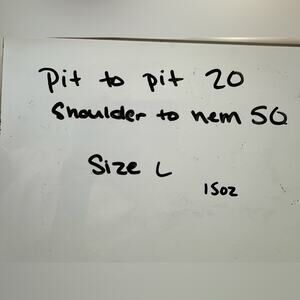 Pit to pit 20
Shoulder to hem 50
Size L
15oz